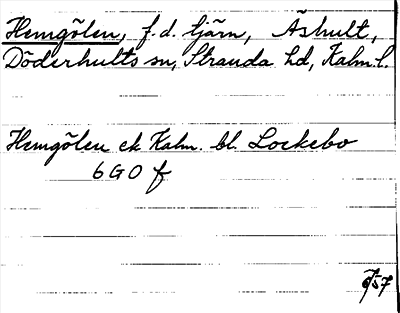 Hemgölen, f.d. tjärn, Äshult,
Döderhults sn, Stranda hd, Kalm.l.
Hemgölen ek Kalm. bl. Lockebo
6 G O f